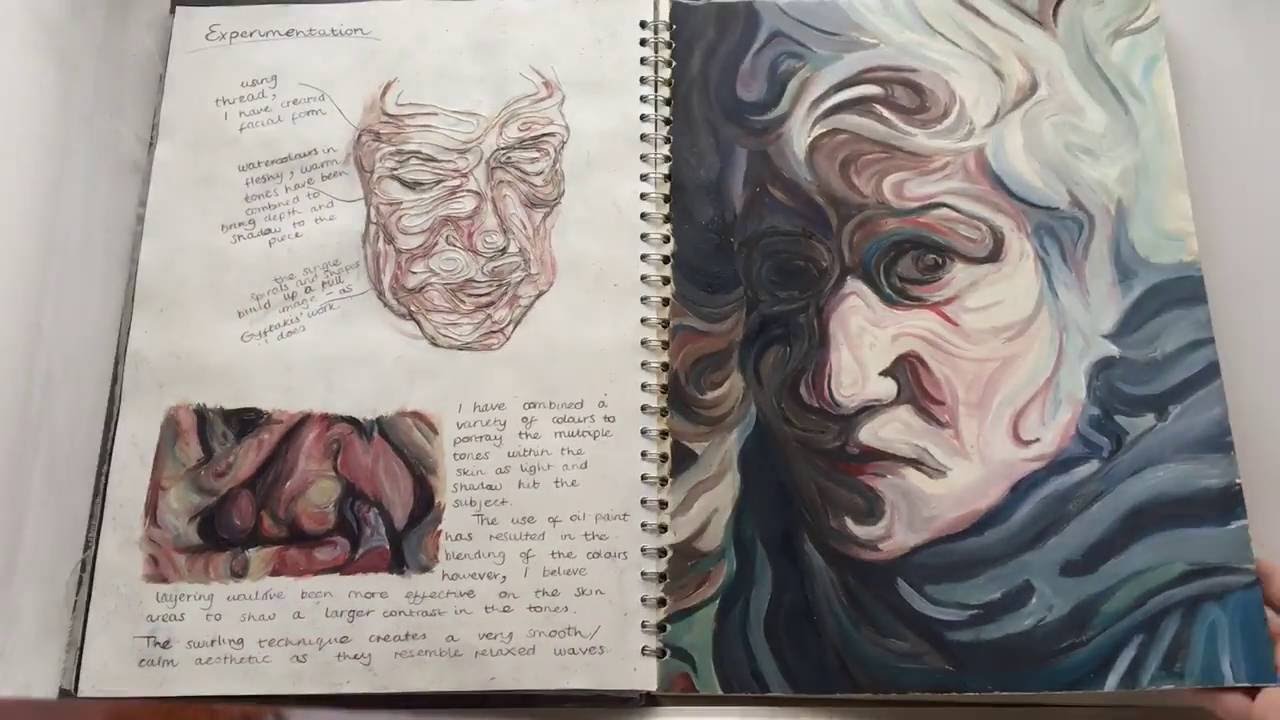 Experimentation
using
thread,
I have created
facial form
watercolours in
fleshy, warm
tones have been
combined to
bring depth and
shadow to the
piece
the single
spirals and shapes
build up a full
image - as
Gyftakis' work
does
I have combined a
variety of colours to
portray the multiple
tones within the
skin as light and
shadow hit the
subject.
The use of oil paint
has resulted in the
blending of the colours
however, I believe
layering would've been more effective on the skin
areas to show a larger contrast in the tones.
The swirling technique creates a very smooth/
calm aesthetic as they resemble relaxed waves.